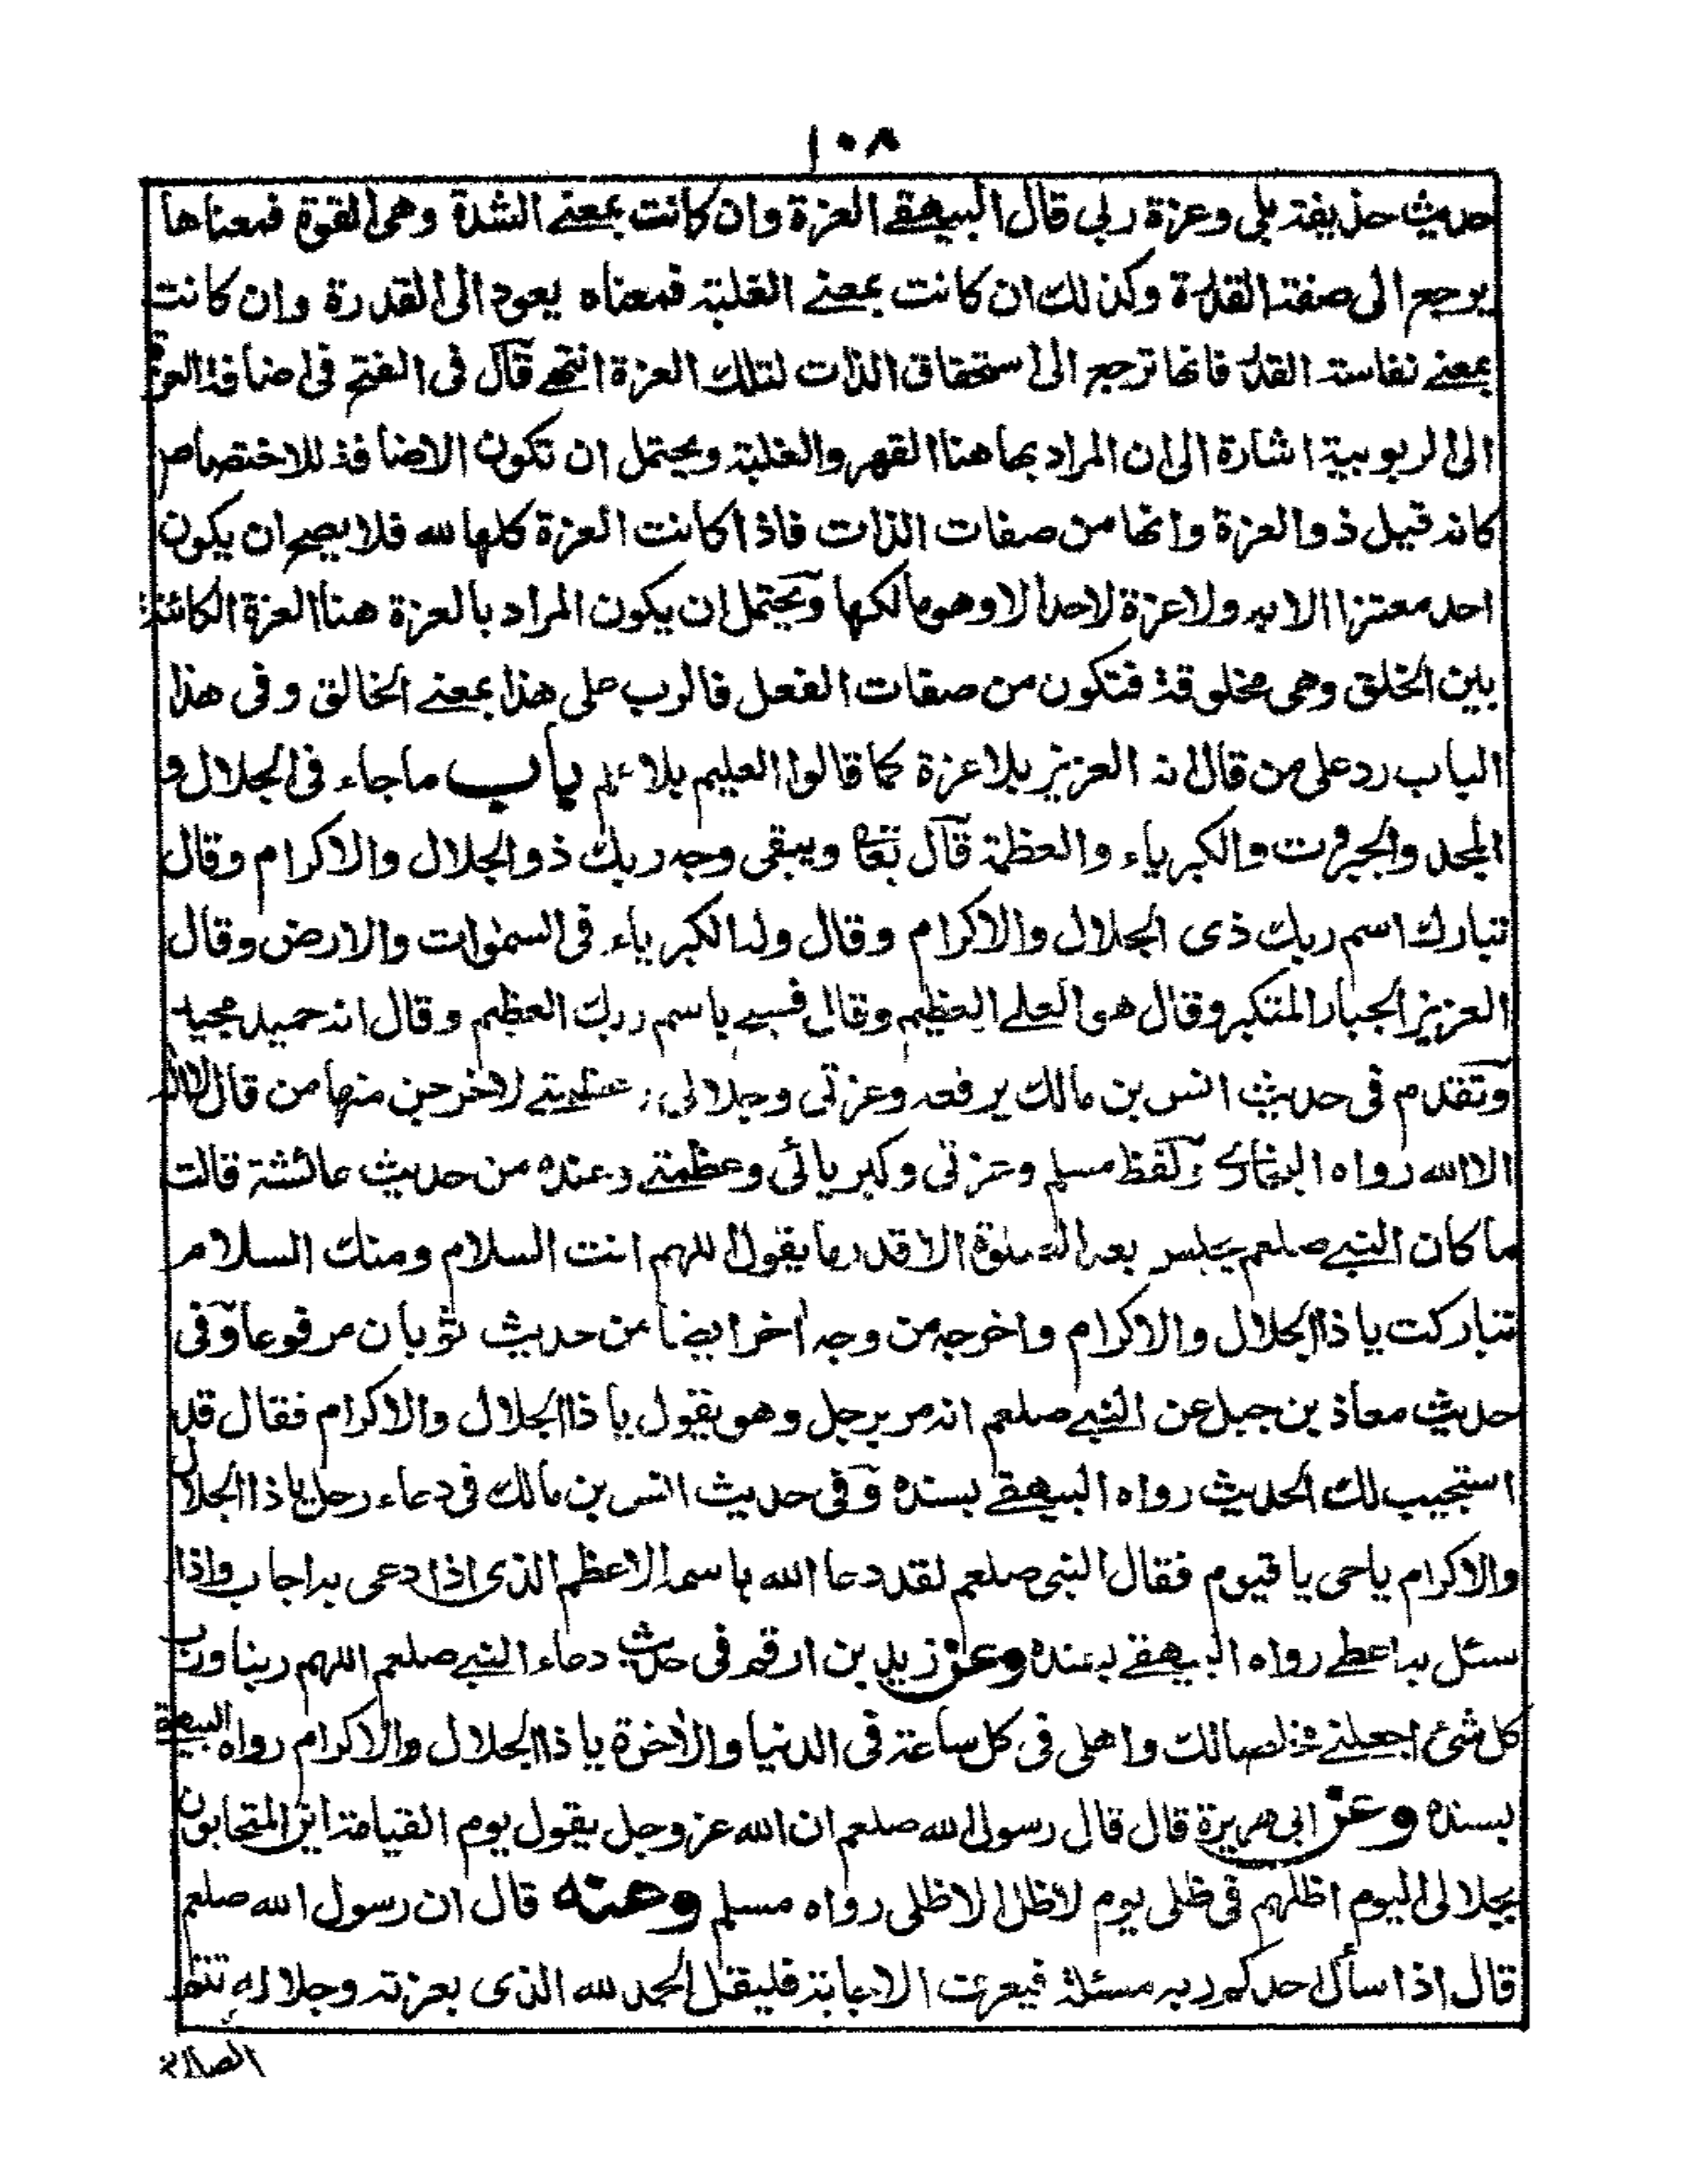 ١٠٨
حديث حذيفة بلى وعزة ربى قال البيهقى العزة وان كانت بمعنى الشدة وهى القوة فمعناها
يرجع الى صفة القدرة وكذلك ان كانت بمعنى الغلبة فمعناه يعود الى القدرة وان كانت
بمعنى نفاسة القدر فانها ترجع الى استحقاق الذات لتلك العزة انتهى قال فى الفتح فى اضافة العزة
الى الربوبية اشارة الى ان المراد بها هنا القهر والغلبة ويحتمل ان تكون الاضافة للاختصاص
كانه قيل ذو العزة وانها من صفات الذات فاذا كانت العزة كلها لله فلا يصح ان يكون
احد معتزا الا به ولا عزة لاحد الا وهو مالكها ويحتمل ان يكون المراد بالعزة هنا العزة الكائنة
بين الخلق وهى مخلوقة فتكون من صفات الفعل فالرب على هذا بمعنى الخالق وفى هذا
الباب رد على من قال انه العزيز بلا عزة كما قالوا العليم بلا علم باب ما جاء فى الجلال و
المجد والجبروت والكبرياء والعظمة قال تعا ويبقى وجه ربك ذو الجلال والاكرام وقال
تبارك اسم ربك ذى الجلال والاكرام وقال وله الكبرياء فى السموات والارض وقال
العزيز الجبار المتكبر وقال هو العلى العظيم وقال فسبح باسم ربك العظيم وقال انه حميد مجيد
وتقدم فى حديث انس بن مالك يرفعه وعزتى وجلالى وعظمتى لاخرجن منها من قال لا اله
الا الله رواه البخارى ولفظ مسلم وعزتى وكبريائى وعظمتى وعنده من حديث عائشة قالت
ما كان النبى صلعم يجلس بعد الصلوة الا قدر ما يقول اللهم انت السلام ومنك السلام
تباركت يا ذا الجلال والاكرام واخرجه من وجه اخر ايضا من حديث ثوبان مرفوعا وفى
حديث معاذ بن جبل عن النبى صلعم انه مر برجل وهو يقول يا ذا الجلال والاكرام فقال قد
استجيب لك الحديث رواه البيهقى بسنده وفى حديث انس بن مالك فى دعاء رجل يا ذا الجلال
والاكرام يا حى يا قيوم فقال النبى صلعم لقد دعا الله باسمه الاعظم الذى اذا دعى به اجاب واذا
سئل به اعطى رواه البيهقى بسنده وعن زيد بن ارقم فى حديث دعاء النبى صلعم اللهم ربنا ورب
كل شئ اجعلنى مخلصا لك واهلى فى كل ساعة فى الدنيا والاخرة يا ذا الجلال والاكرام رواه البيهقى
بسنده وعن ابى هريرة قال قال رسول الله صلعم ان الله عز وجل يقول يوم القيامة اين المتحابون
بجلالى اليوم اظلهم فى ظلى يوم لا ظل الا ظلى رواه مسلم وعنه قال ان رسول الله صلعم
قال اذا سأل احدكم ربه مسئلة فيعرف الاجابة فليقل الحمد لله الذى بعزته وجلاله تتم
الصالحات